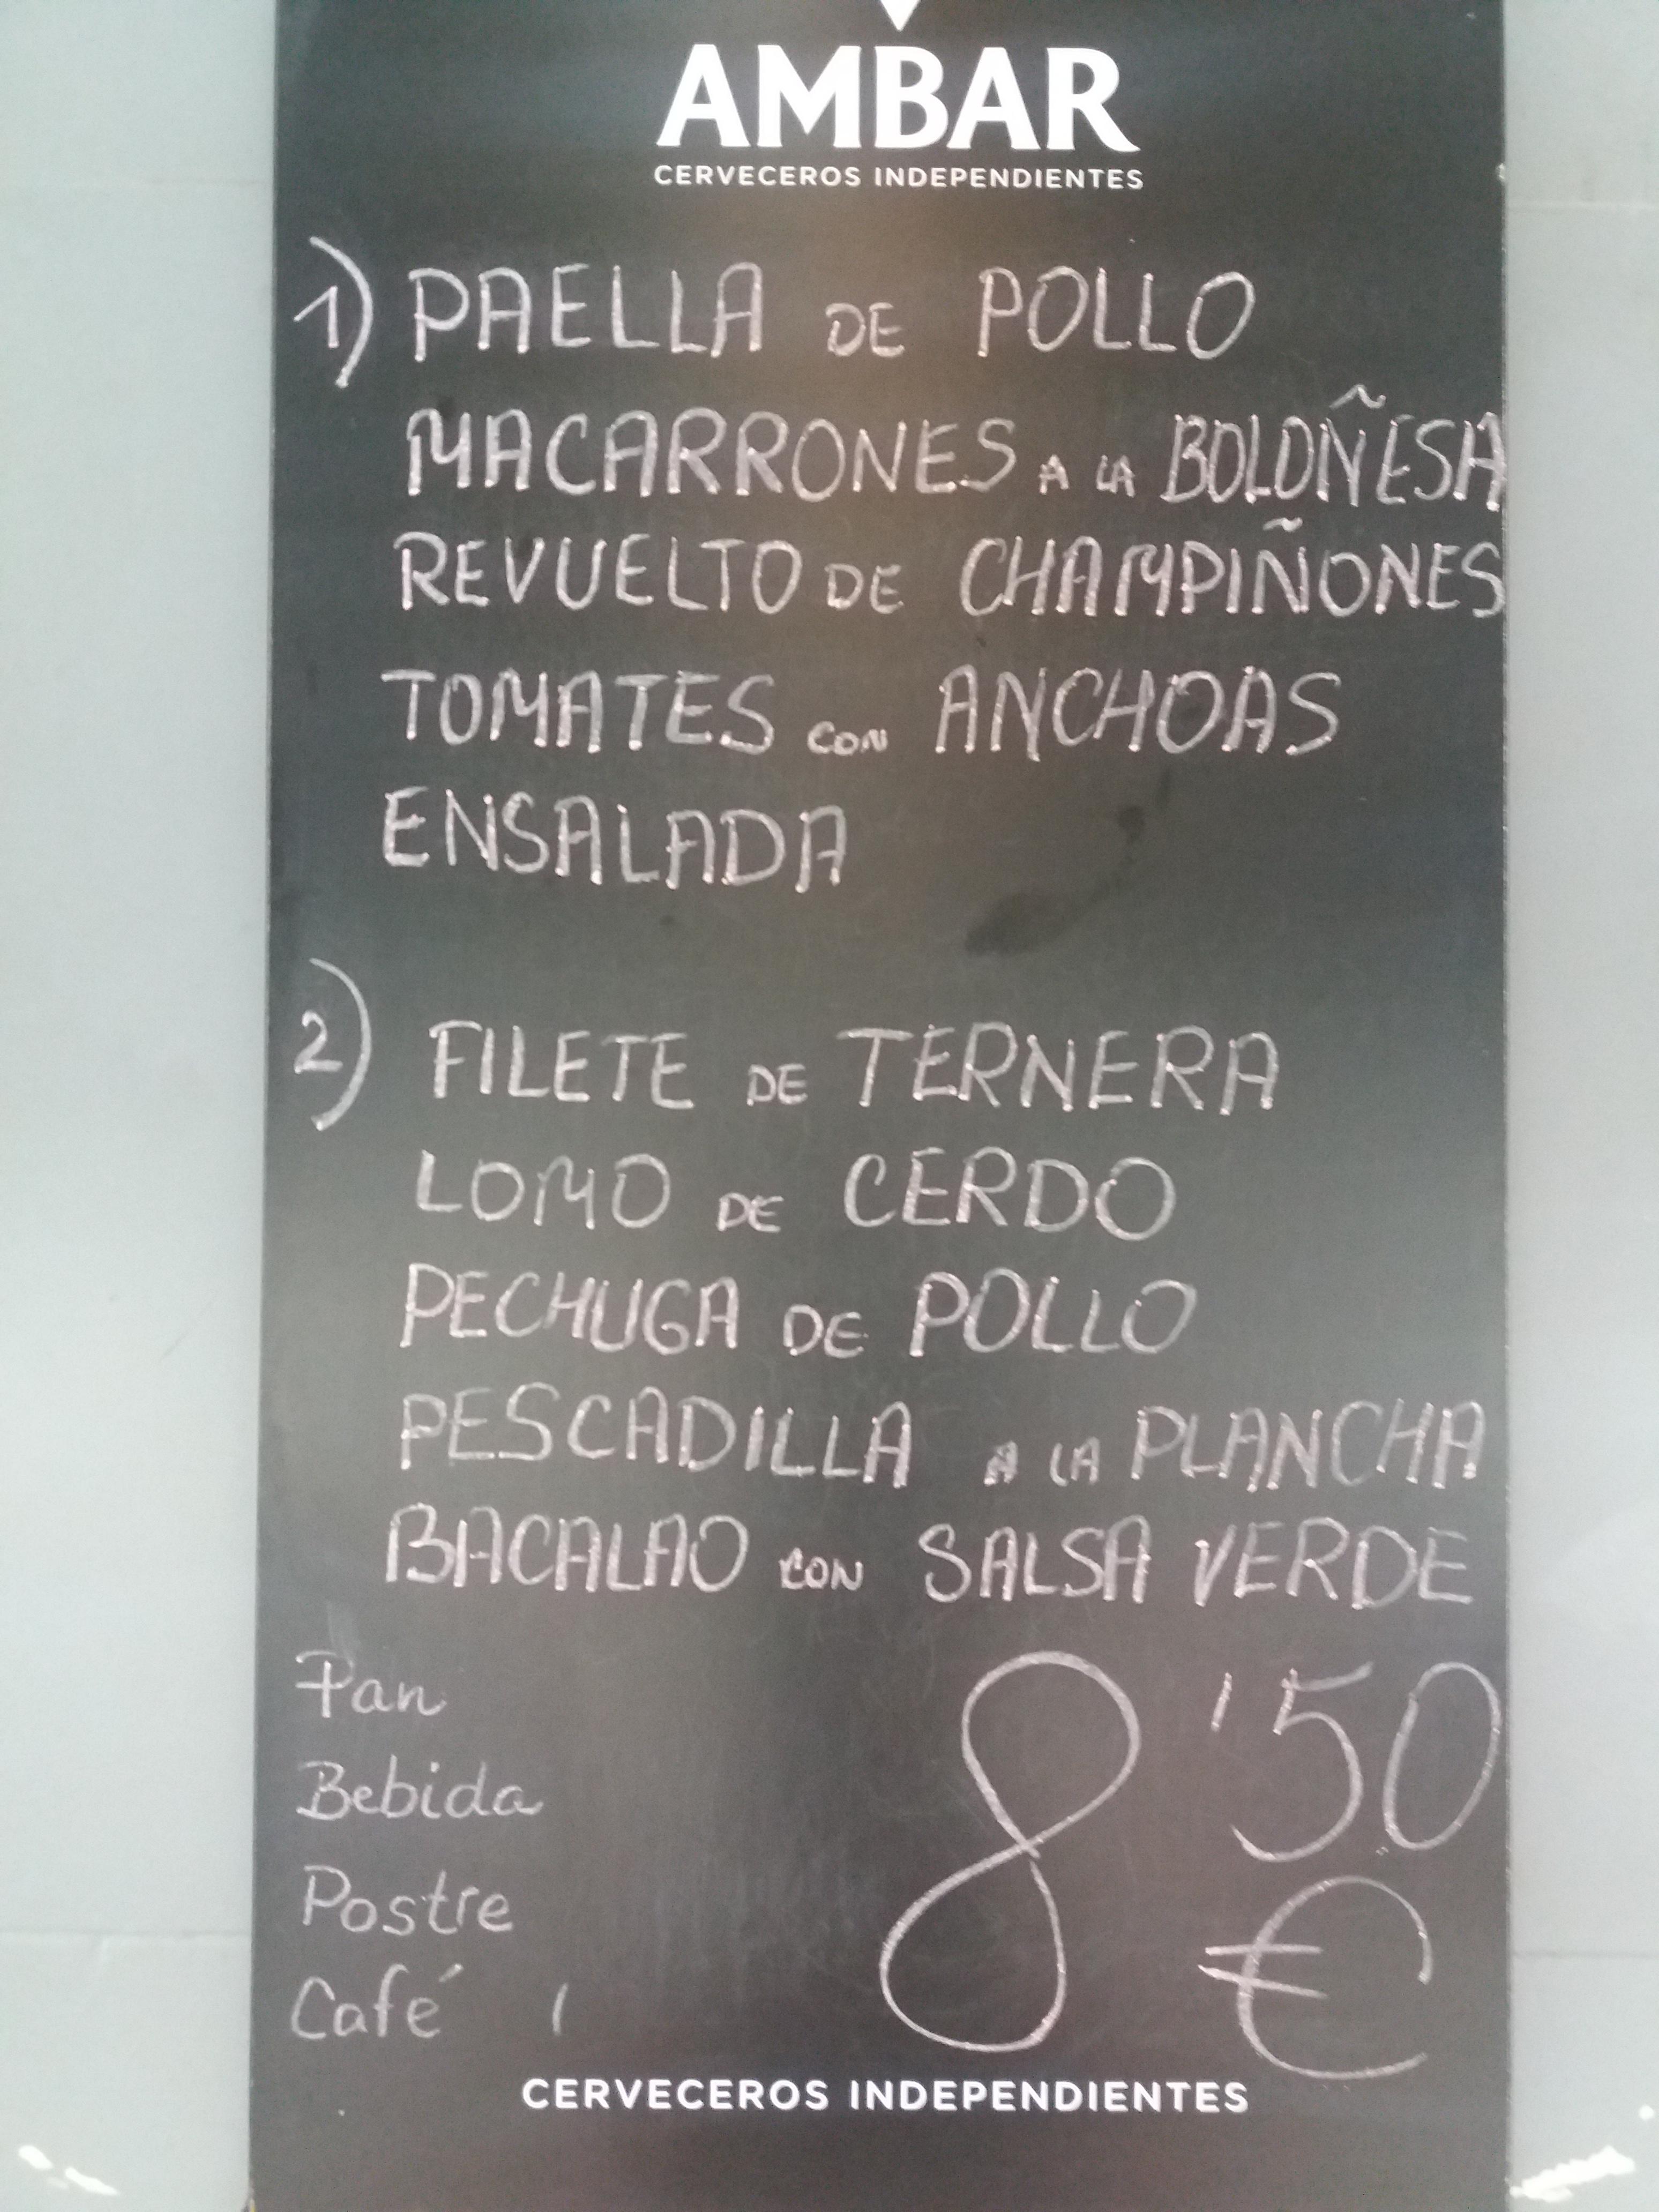 AMBAR
CERVECEROS INDEPENDIENTES
1) PAELLA DE POLLO
MACARRONES A LA BOLOÑESA
REVUELTO DE CHAMPIÑONES
TOMATES CON ANCHOAS
ENSALADA
2) FILETE DE TERNERA
LOMO DE CERDO
PECHUGA DE POLLO
PESCADILLA A LA PLANCHA
BACALAO CON SALSA VERDE
Pan
Bebida
Postre
Café
8'50
€
CERVECEROS INDEPENDIENTES